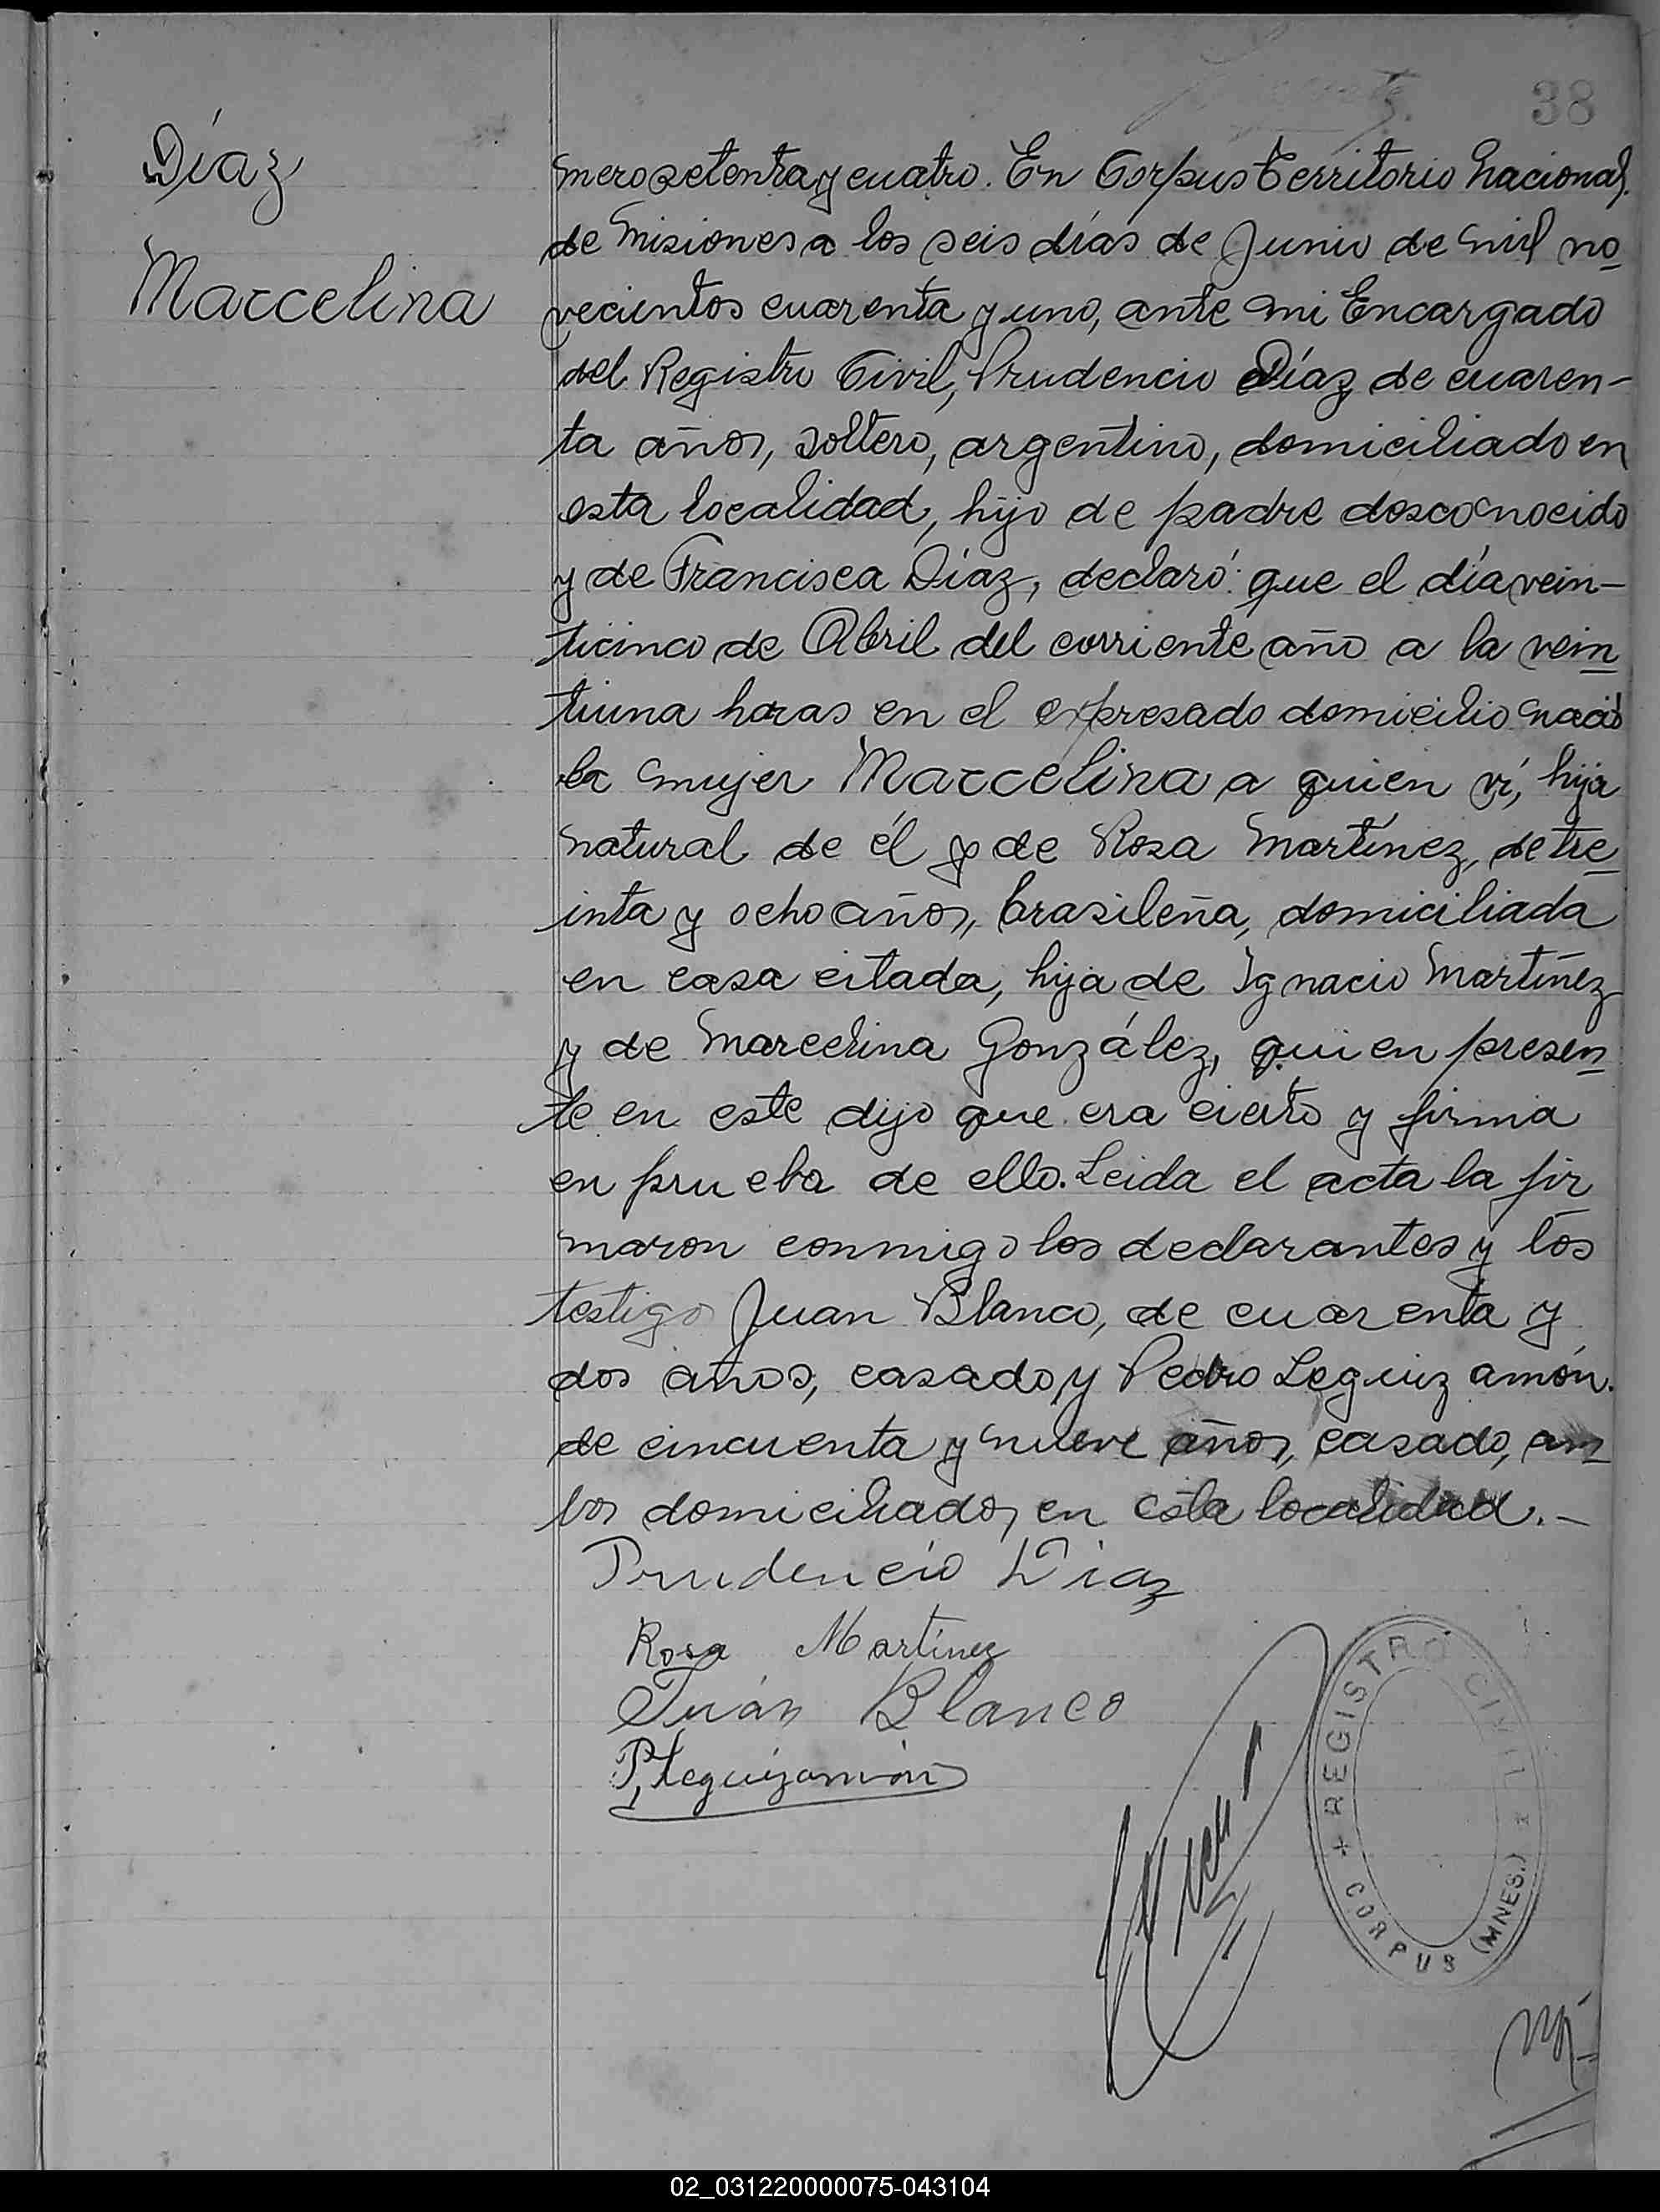 38
Díaz
Marcelina
mero setenta y cuatro. En Corpus Territorio Nacional
de Misiones a los seis días de Junio de mil no
vecientos cuarenta y uno, ante mi Encargado
del Registro Civil, Prudencio Díaz de cuaren-
ta años, soltero, argentino, domiciliado en
esta localidad, hijo de padre desconocido
y de Francisca Díaz, declaró: que el día vein-
ticinco de Abril del corriente año a la vein
tiuna horas en el expresado domicilio nació
la mujer Marcelina a quien ví, hija
natural de él y de Rosa Martínez, de tre
inta y ocho años, brasileña, domiciliada
en casa citada, hija de Ignacio Martínez
y de Marcelina González, quien presen
te en este dijo que era cierto y firma
en prueba de ello. Leida el acta la fir
maron conmigo los declarantes y los
testigo Juan Blanco, de cuarenta y
dos años, casado y Pedro Leguizamón.
de cincuenta y nueve años, casado, am
bos domiciliados en esta localidad.-
Prudencio Diaz
Rosa Martínez
Juán Blanco
P. Leguizamón
REGISTRO CIVIL
CORPUS (MNES.)
02_031220000075-043104